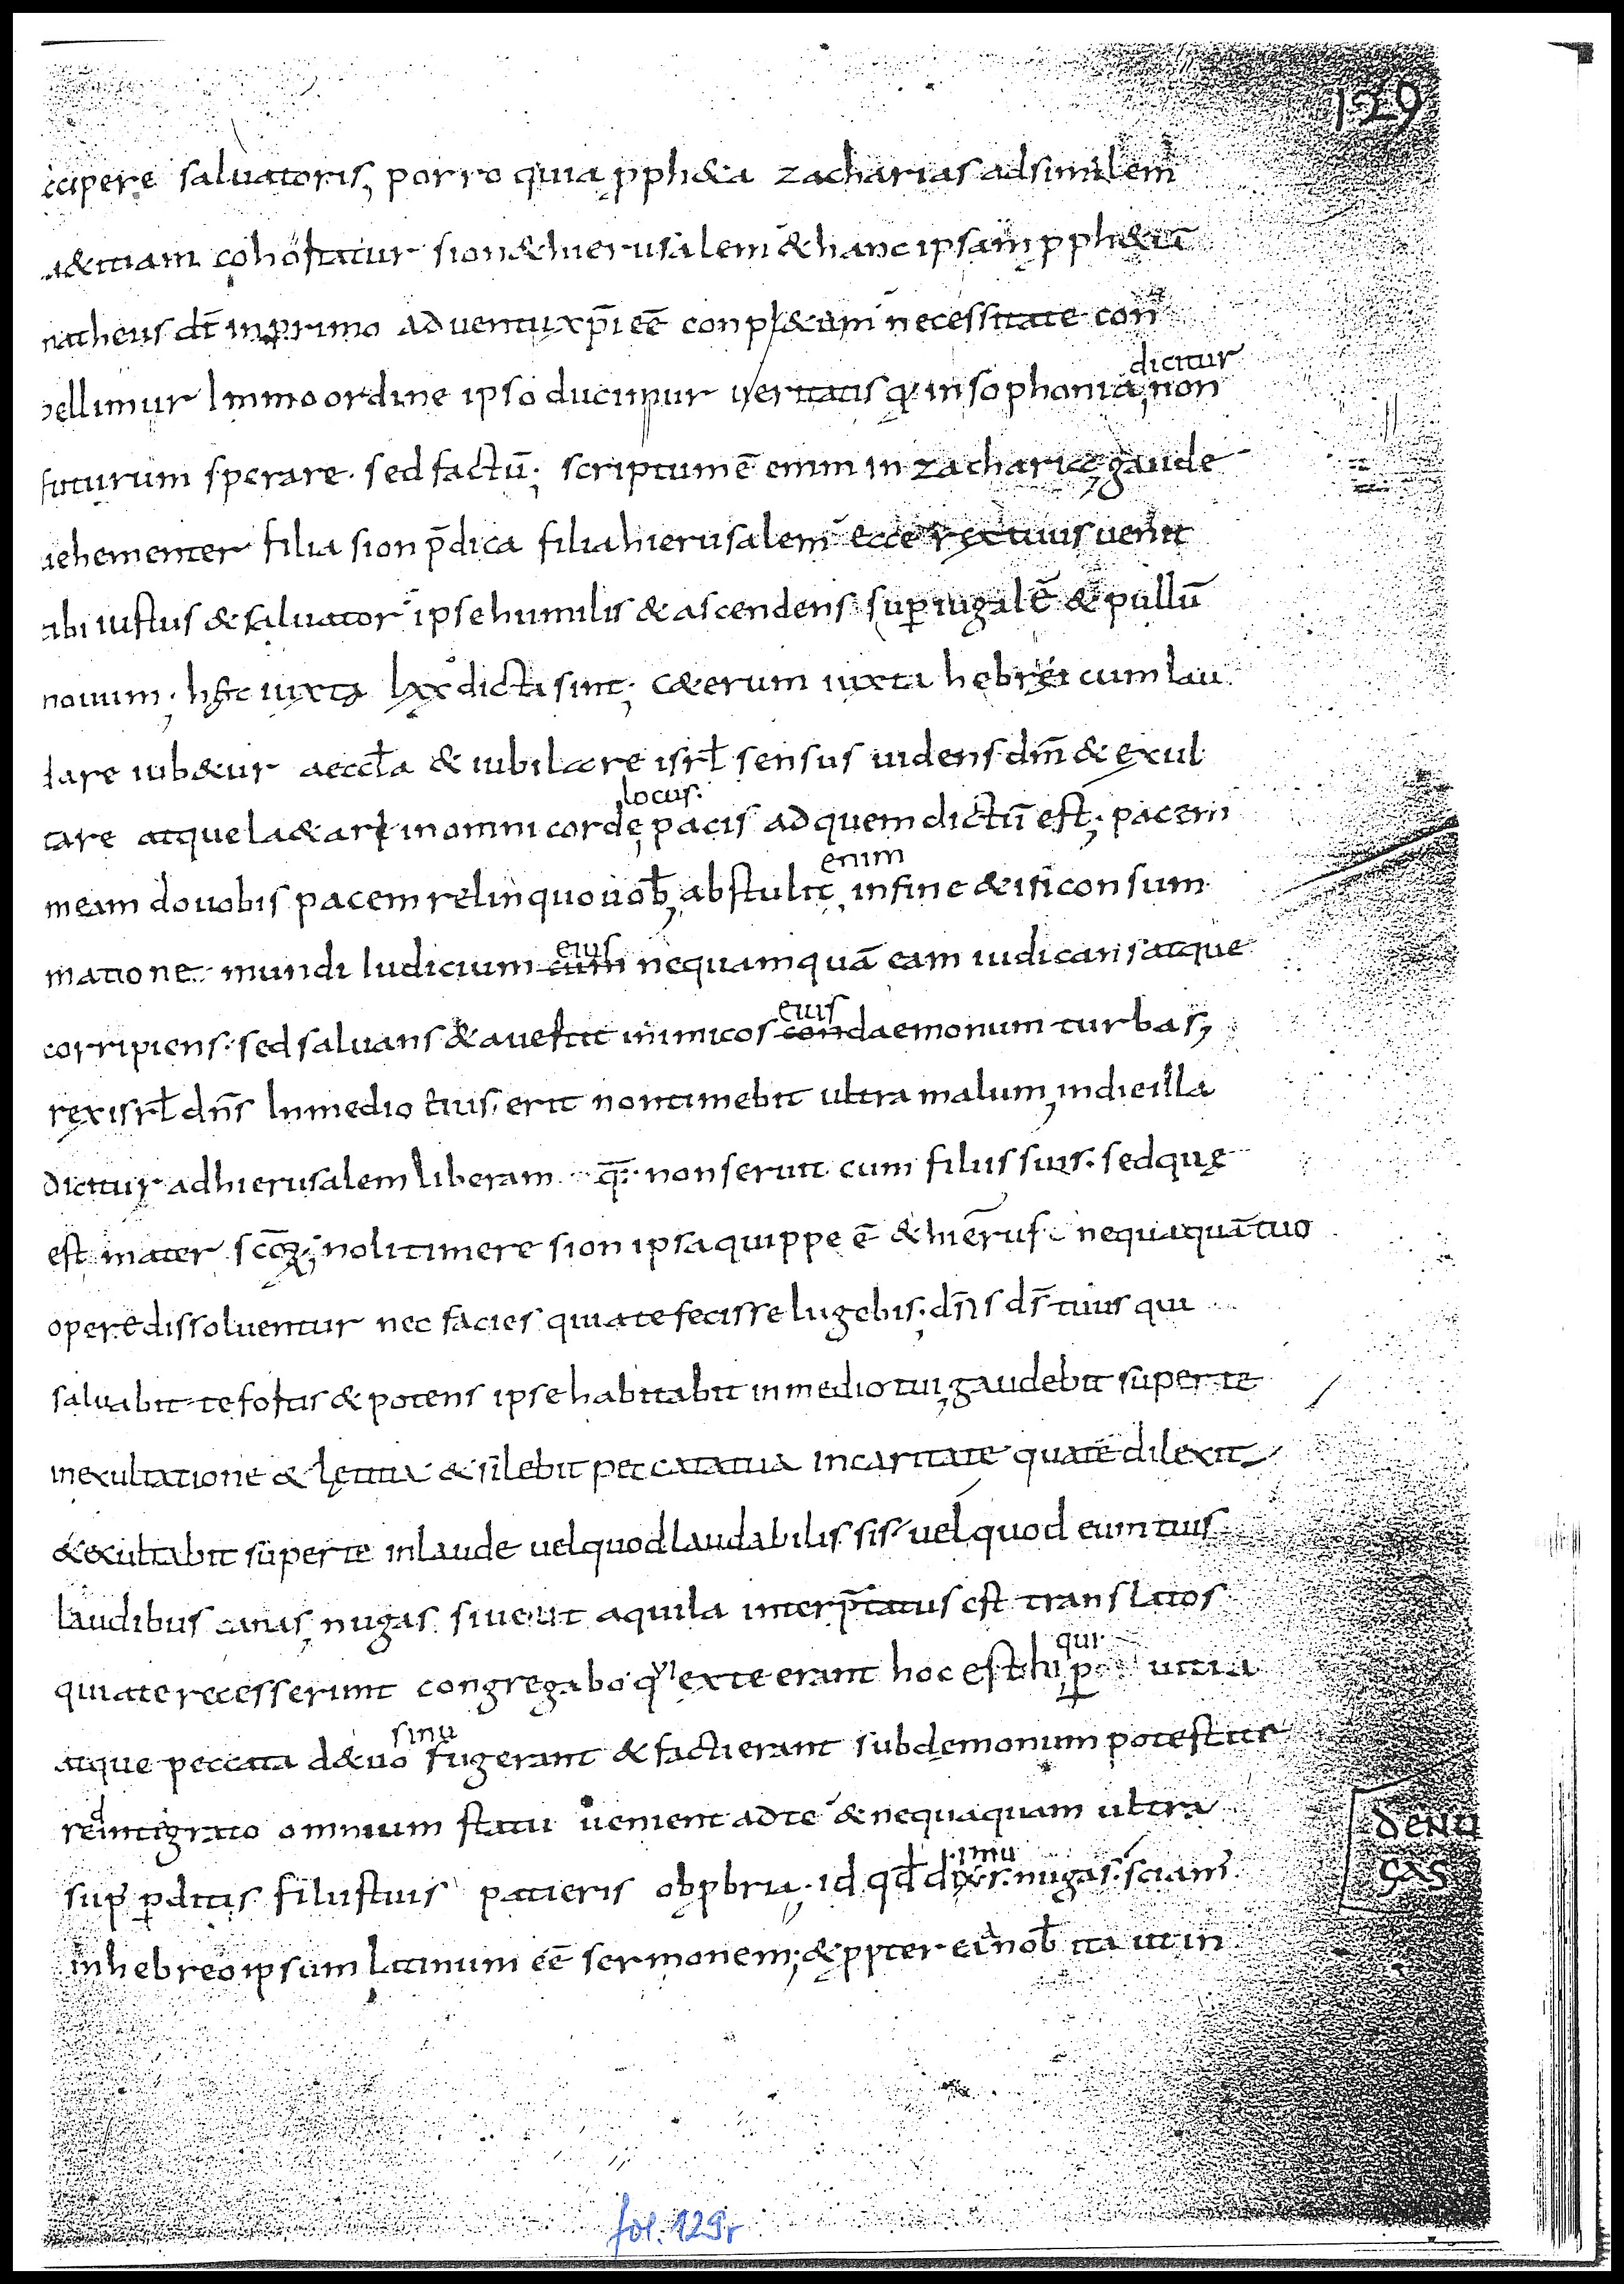 129
cipere saluatoris, porro quia pph&a zacharias ad similem
a&itiam cohortatur sion & hierusalem & hanc ipsam pph&iā
matheus dt̄ in primo aduentu xp̄i eē conpl&am necessitate con
pellimur Immo ordine ipso ducimur ueritatis q in sophonia, non
dicitur
futurum sperare. sed factū; scriptum ē enim in zacharię, gaude
uehementer filia sion p̄dica filia hierusalem ecce rex tuus uenit
tibi iustus & saluator ipse humilis & ascendens sup iugalē & pullū
nouum; hęc iuxta lxx dicta sint; c&erum iuxta hebrei cum lau
dare iub&ur aeccl̄a & iubilare isrl̄ sensus uidens dm̄ & exul
tare atque la&ari in omni corde, pacis ad quem dictū est; pacem
locus.
meam do uobis pacem relinquo uob̄, abstulit, in fine & in consum
enim
matione mundi Iudicium cum nequamquā eam iudicans atque
eius
corripiens. sed saluans & auertit inimicos con daemonum turbas,
eius
rex isrl̄ dn̄s In medio tius erit non timebit ultra malum, in die illa
dicitur ad hierusalem liberam q̄. non seruit cum filiis suis. sed quę
est mater scōꝝ; noli timere sion ipsa quippe ē & hierus̄. nequaquā tuo
opere dissoluentur nec facies quia te fecisse lugebis; dn̄s ds̄ tuus qui
saluabit te fortis & potens ipse habitabit in medio tui, gaudebit super te
in exultatione & lętitia & silebit peccata tua in caritate qua te dilexit
& exultabit super te in laude uel quod laudabilis sis uel quod eum tuis
laudibus canas, nugas siue ut aquila interp̄tatus est translatos
qui a te recesserunt congregabo qi ex te erant hoc est hi, p uitia
qui
atque peccata d&uo fugerant & facti erant sub dęmonum potestate
sinu
redintigrato omnium statu uenient ad te & nequaquam ultra
sup pditis filiis tuis patieris obpbriū. id qd̄ dixs. nugas. sciam
imu
in hebreo ipsum latinum eē sermonem; & ppter ea nob̄ ita ut in
DE NU
GAS
fol. 129r